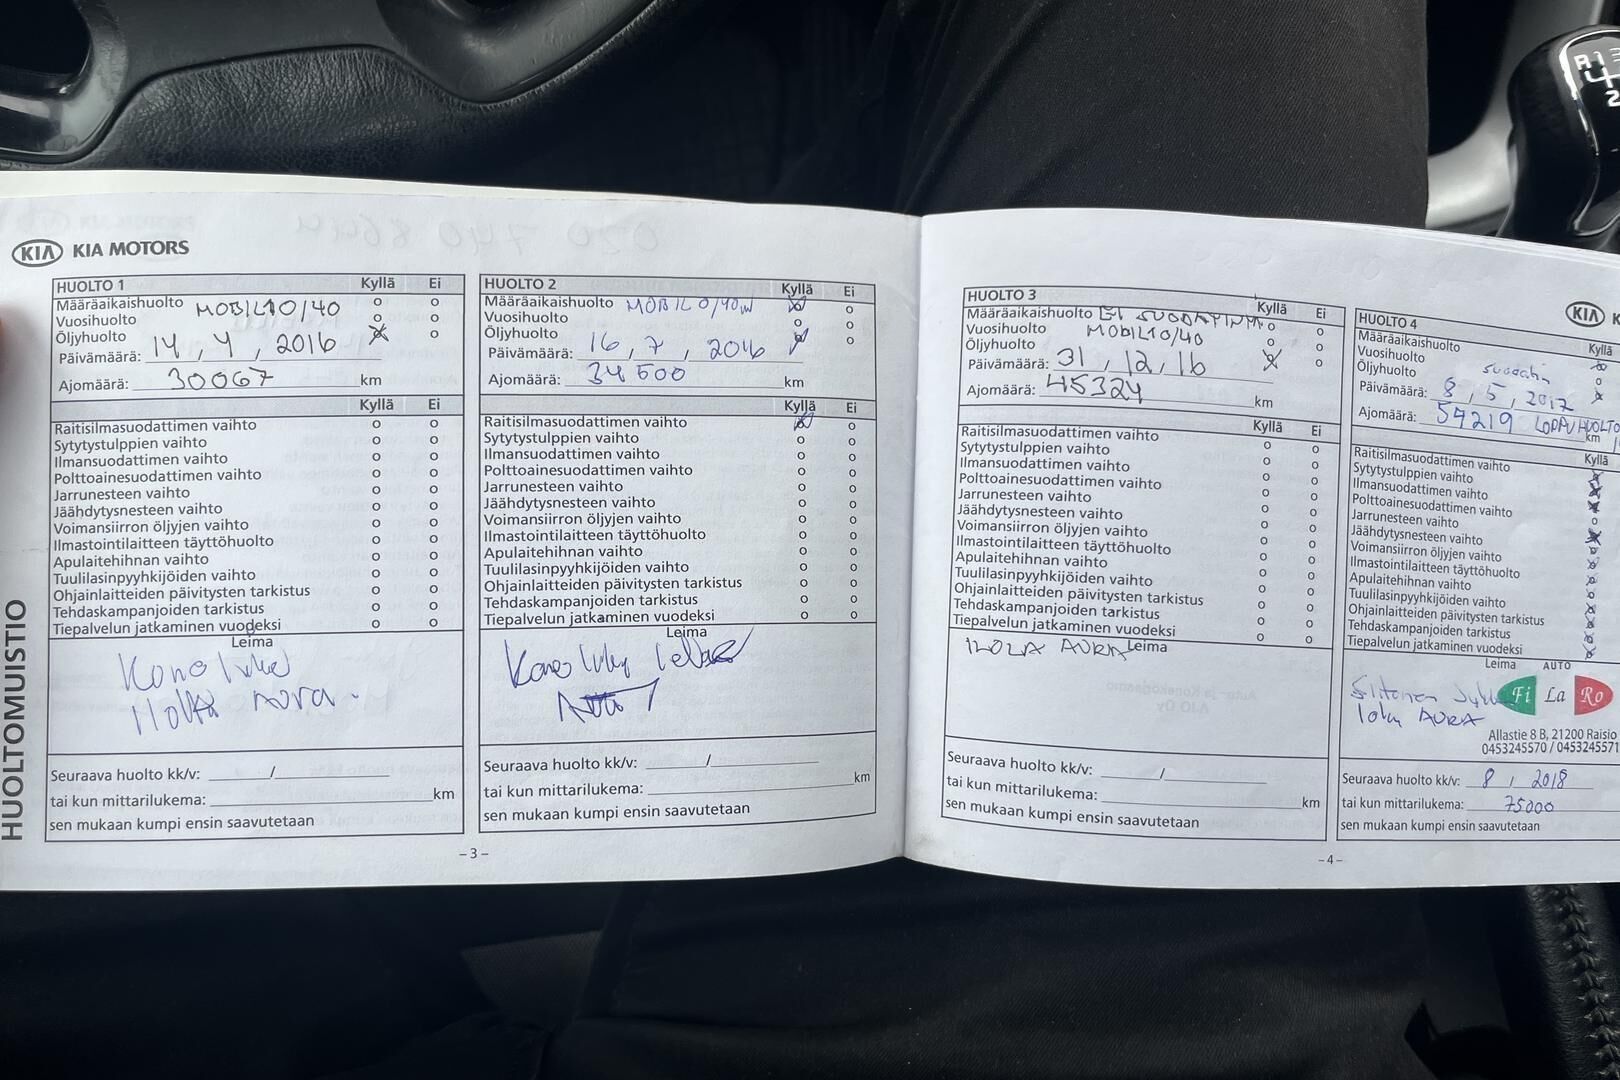 KIA KIA MOTORS
HUOLTOMUISTIO
HUOLTO 1 Kyllä Ei
Määräaikaishuolto MOBIL10/40 o o
Vuosihuolto o o
Öljyhuolto o
Päivämäärä: 14, 4, 2016
Ajomäärä: 30067 km
Kyllä Ei
Raitisilmasuodattimen vaihto o o
Sytytystulppien vaihto o o
Ilmansuodattimen vaihto o o
Polttoainesuodattimen vaihto o o
Jarrunesteen vaihto o o
Jäähdytysnesteen vaihto o o
Voimansiirron öljyjen vaihto o o
Ilmastointilaitteen täyttöhuolto o o
Apulaitehihnan vaihto o o
Tuulilasinpyyhkijöiden vaihto o o
Ohjainlaitteiden päivitysten tarkistus o o
Tehdaskampanjoiden tarkistus o o
Tiepalvelun jatkaminen vuodeksi o o
Leima
AURA
Seuraava huolto kk/v: /
tai kun mittarilukema: km
sen mukaan kumpi ensin saavutetaan
HUOLTO 2 Kyllä Ei
Määräaikaishuolto MOBIL 0/40W o
Vuosihuolto o o
Öljyhuolto o
Päivämäärä: 16, 7, 2016
Ajomäärä: 34500 km
Kyllä Ei
Raitisilmasuodattimen vaihto o
Sytytystulppien vaihto o o
Ilmansuodattimen vaihto o o
Polttoainesuodattimen vaihto o o
Jarrunesteen vaihto o o
Jäähdytysnesteen vaihto o o
Voimansiirron öljyjen vaihto o o
Ilmastointilaitteen täyttöhuolto o o
Apulaitehihnan vaihto o o
Tuulilasinpyyhkijöiden vaihto o o
Ohjainlaitteiden päivitysten tarkistus o o
Tehdaskampanjoiden tarkistus o o
Tiepalvelun jatkaminen vuodeksi o o
Leima
Seuraava huolto kk/v: /
tai kun mittarilukema: km
sen mukaan kumpi ensin saavutetaan
– 3 –
HUOLTO 3 Kyllä Ei
Määräaikaishuolto EI o o
Vuosihuolto MOBIL10/40 o o
Öljyhuolto o
Päivämäärä: 31, 12, 16
Ajomäärä: 45324 km
Kyllä Ei
Raitisilmasuodattimen vaihto o o
Sytytystulppien vaihto o o
Ilmansuodattimen vaihto o o
Polttoainesuodattimen vaihto o o
Jarrunesteen vaihto o o
Jäähdytysnesteen vaihto o o
Voimansiirron öljyjen vaihto o o
Ilmastointilaitteen täyttöhuolto o o
Apulaitehihnan vaihto o o
Tuulilasinpyyhkijöiden vaihto o o
Ohjainlaitteiden päivitysten tarkistus o o
Tehdaskampanjoiden tarkistus o o
Tiepalvelun jatkaminen vuodeksi o o
Leima
AURA
Seuraava huolto kk/v: /
tai kun mittarilukema: km
sen mukaan kumpi ensin saavutetaan
KIA K
HUOLTO 4 Kyllä
Määräaikaishuolto
Vuosihuolto o
Öljyhuolto
Päivämäärä: 8, 5, 2017
Ajomäärä: 57219 km
Kyllä
Raitisilmasuodattimen vaihto
Sytytystulppien vaihto
Ilmansuodattimen vaihto
Polttoainesuodattimen vaihto
Jarrunesteen vaihto
Jäähdytysnesteen vaihto
Voimansiirron öljyjen vaihto
Ilmastointilaitteen täyttöhuolto
Apulaitehihnan vaihto
Tuulilasinpyyhkijöiden vaihto
Ohjainlaitteiden päivitysten tarkistus
Tehdaskampanjoiden tarkistus
Tiepalvelun jatkaminen vuodeksi
Leima AUTO
Fi La Ro
AURA
Allastie 8 B, 21200 Raisio
0453245570 / 0453245571
Seuraava huolto kk/v: 8 / 2018
tai kun mittarilukema: 75000
sen mukaan kumpi ensin saavutetaan
– 4 –
R 1 3
2